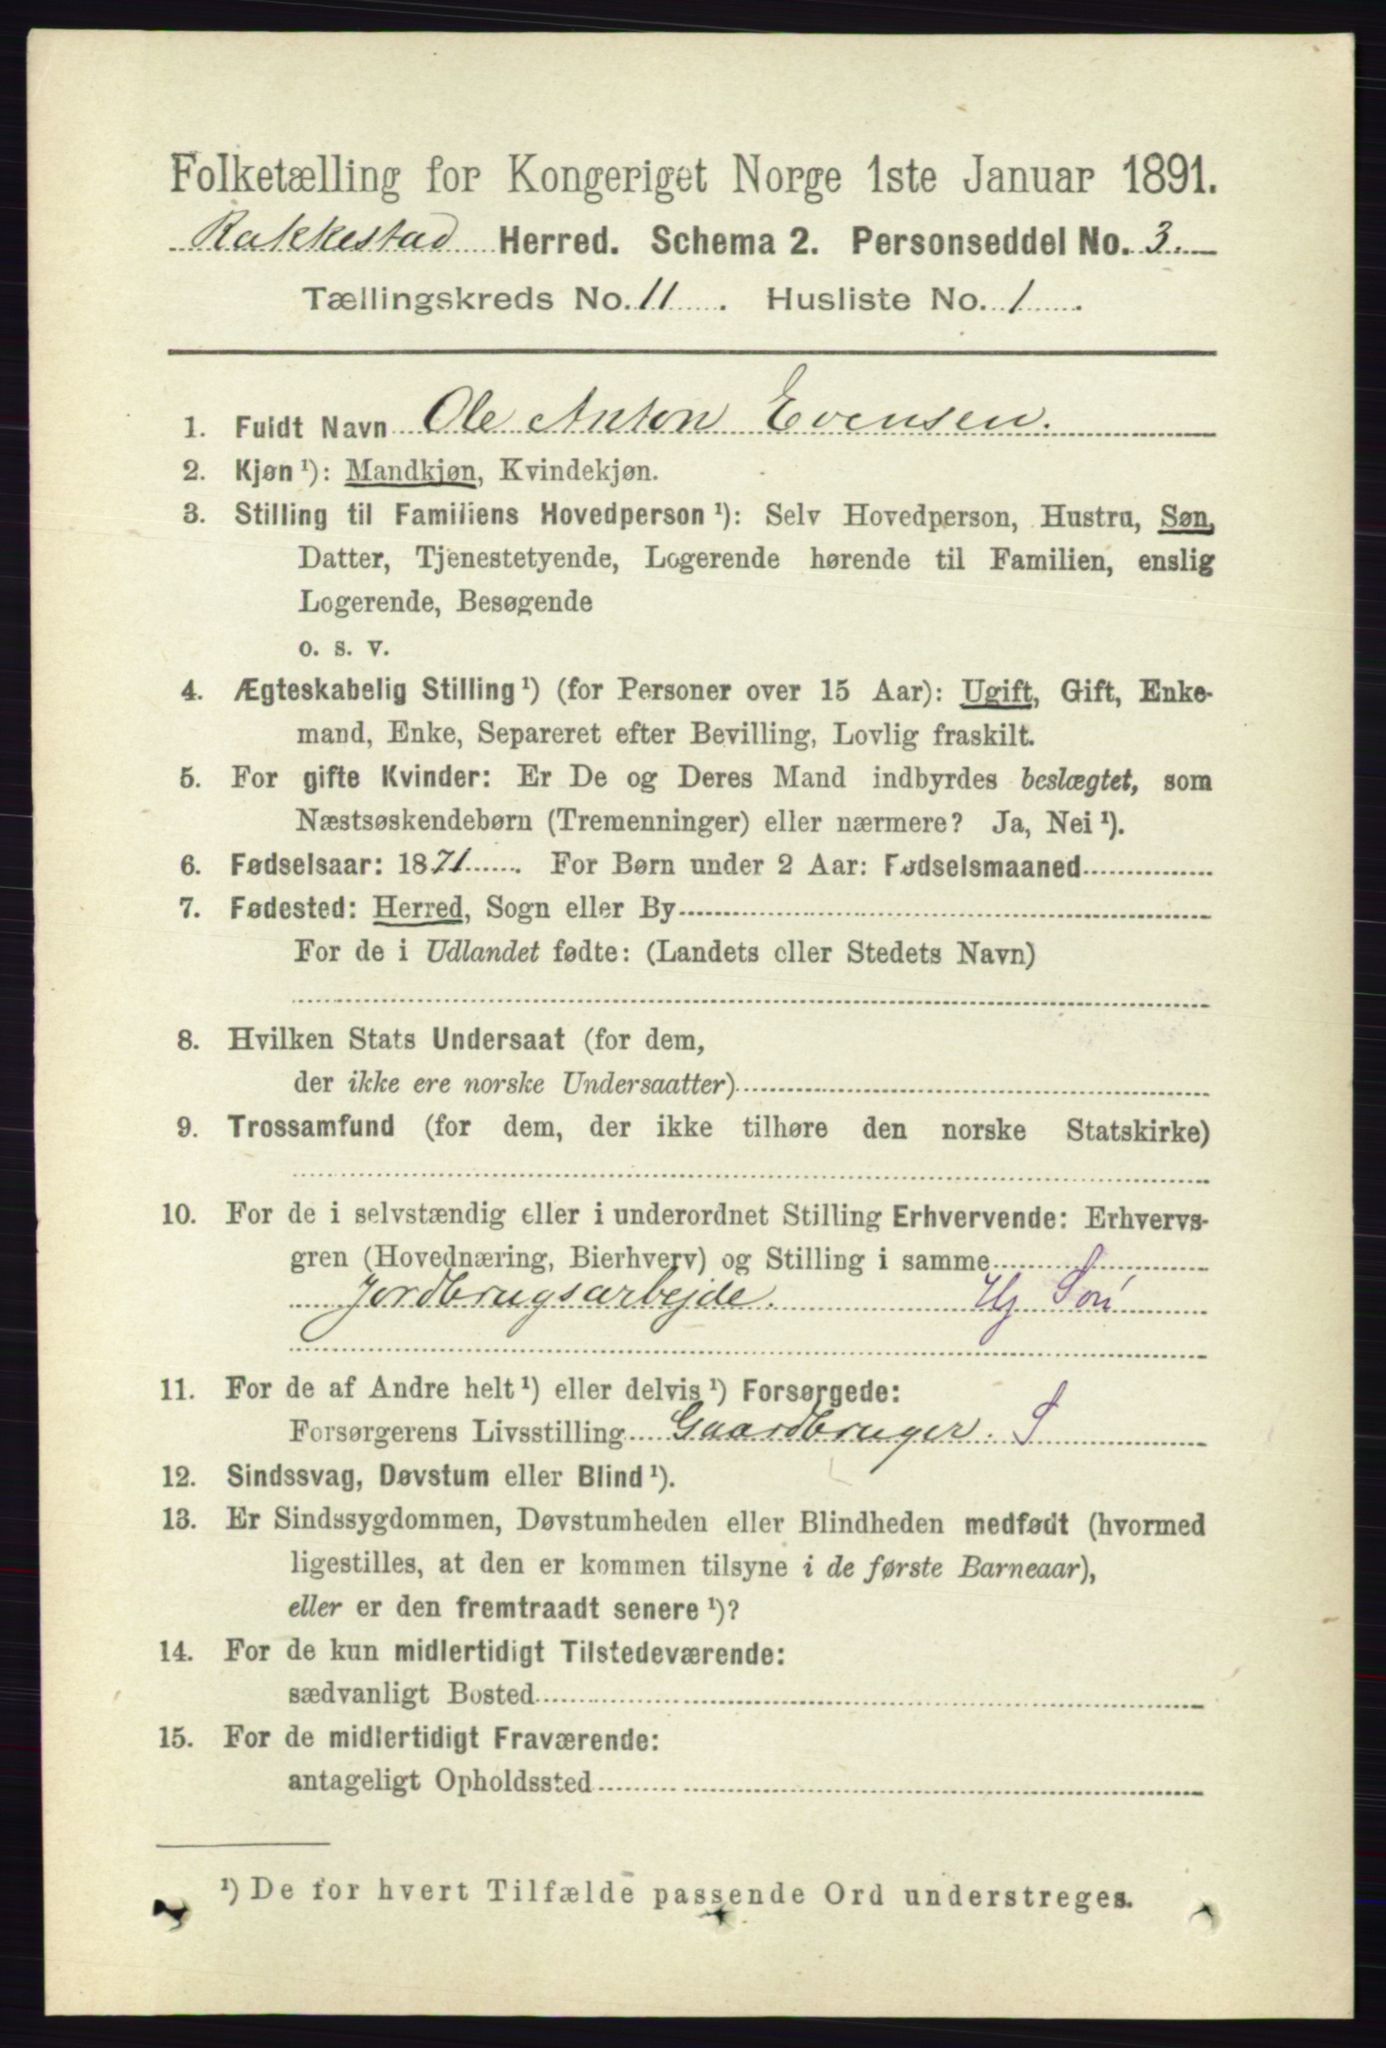 Folketælling for Kongeriget Norge 1ste Januar 1891.
Rakkestad Herred. Schema 2. Personseddel No. 3.
Tællingskreds No. 11. Husliste No. 1.
1. Fuldt Navn Ole Anton Evensen.
2. Kjøn ¹): Mandkjøn, Kvindekjøn.
3. Stilling til Familiens Hovedperson ¹): Selv Hovedperson, Hustru, Søn,
Datter, Tjenestetyende, Logerende hørende til Familien, enslig
Logerende, Besøgende
o. s. v.
4. Ægteskabelig Stilling ¹) (for Personer over 15 Aar): Ugift, Gift, Enke-
mand, Enke, Separeret efter Bevilling, Lovlig fraskilt.
5. For gifte Kvinder: Er De og Deres Mand indbyrdes beslægtet, som
Næstsøskendebørn (Tremenninger) eller nærmere? Ja, Nei ¹).
6. Fødselsaar: 1871. For Børn under 2 Aar: Fødselsmaaned
7. Fødested: Herred, Sogn eller By
For de i Udlandet fødte: (Landets eller Stedets Navn)
8. Hvilken Stats Undersaat (for dem,
der ikke ere norske Undersaatter)
9. Trossamfund (for dem, der ikke tilhøre den norske Statskirke)
10. For de i selvstændig eller i underordnet Stilling Erhvervende: Erhvervs-
gren (Hovednæring, Bierhverv) og Stilling i samme
Jordbrugsarbejde. Hj Søn
11. For de af Andre helt ¹) eller delvis ¹) Forsørgede:
Forsørgerens Livsstilling Gaardbruger. S
12. Sindssvag, Døvstum eller Blind ¹).
13. Er Sindssygdommen, Døvstumheden eller Blindheden medfødt (hvormed
ligestilles, at den er kommen tilsyne i de første Barneaar),
eller er den fremtraadt senere ¹)?
14. For de kun midlertidigt Tilstedeværende:
sædvanligt Bosted
15. For de midlertidigt Fraværende:
antageligt Opholdssted
¹) De for hvert Tilfælde passende Ord understreges.